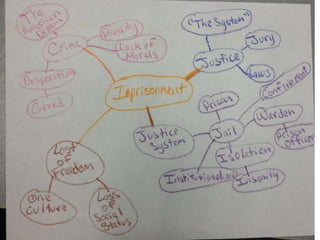 The
American
Dream
Poverty
Crime
Lack of
Morals
Desperation
Greed
"The System"
Jury
Justice
Laws
Imprisonment
Prison
Confinement
Warden
Prison
Officer
Justice
System
Jail
Isolation
Insanity
Lost
of
Freedom
One
Culture
Loss
of
Social
Status